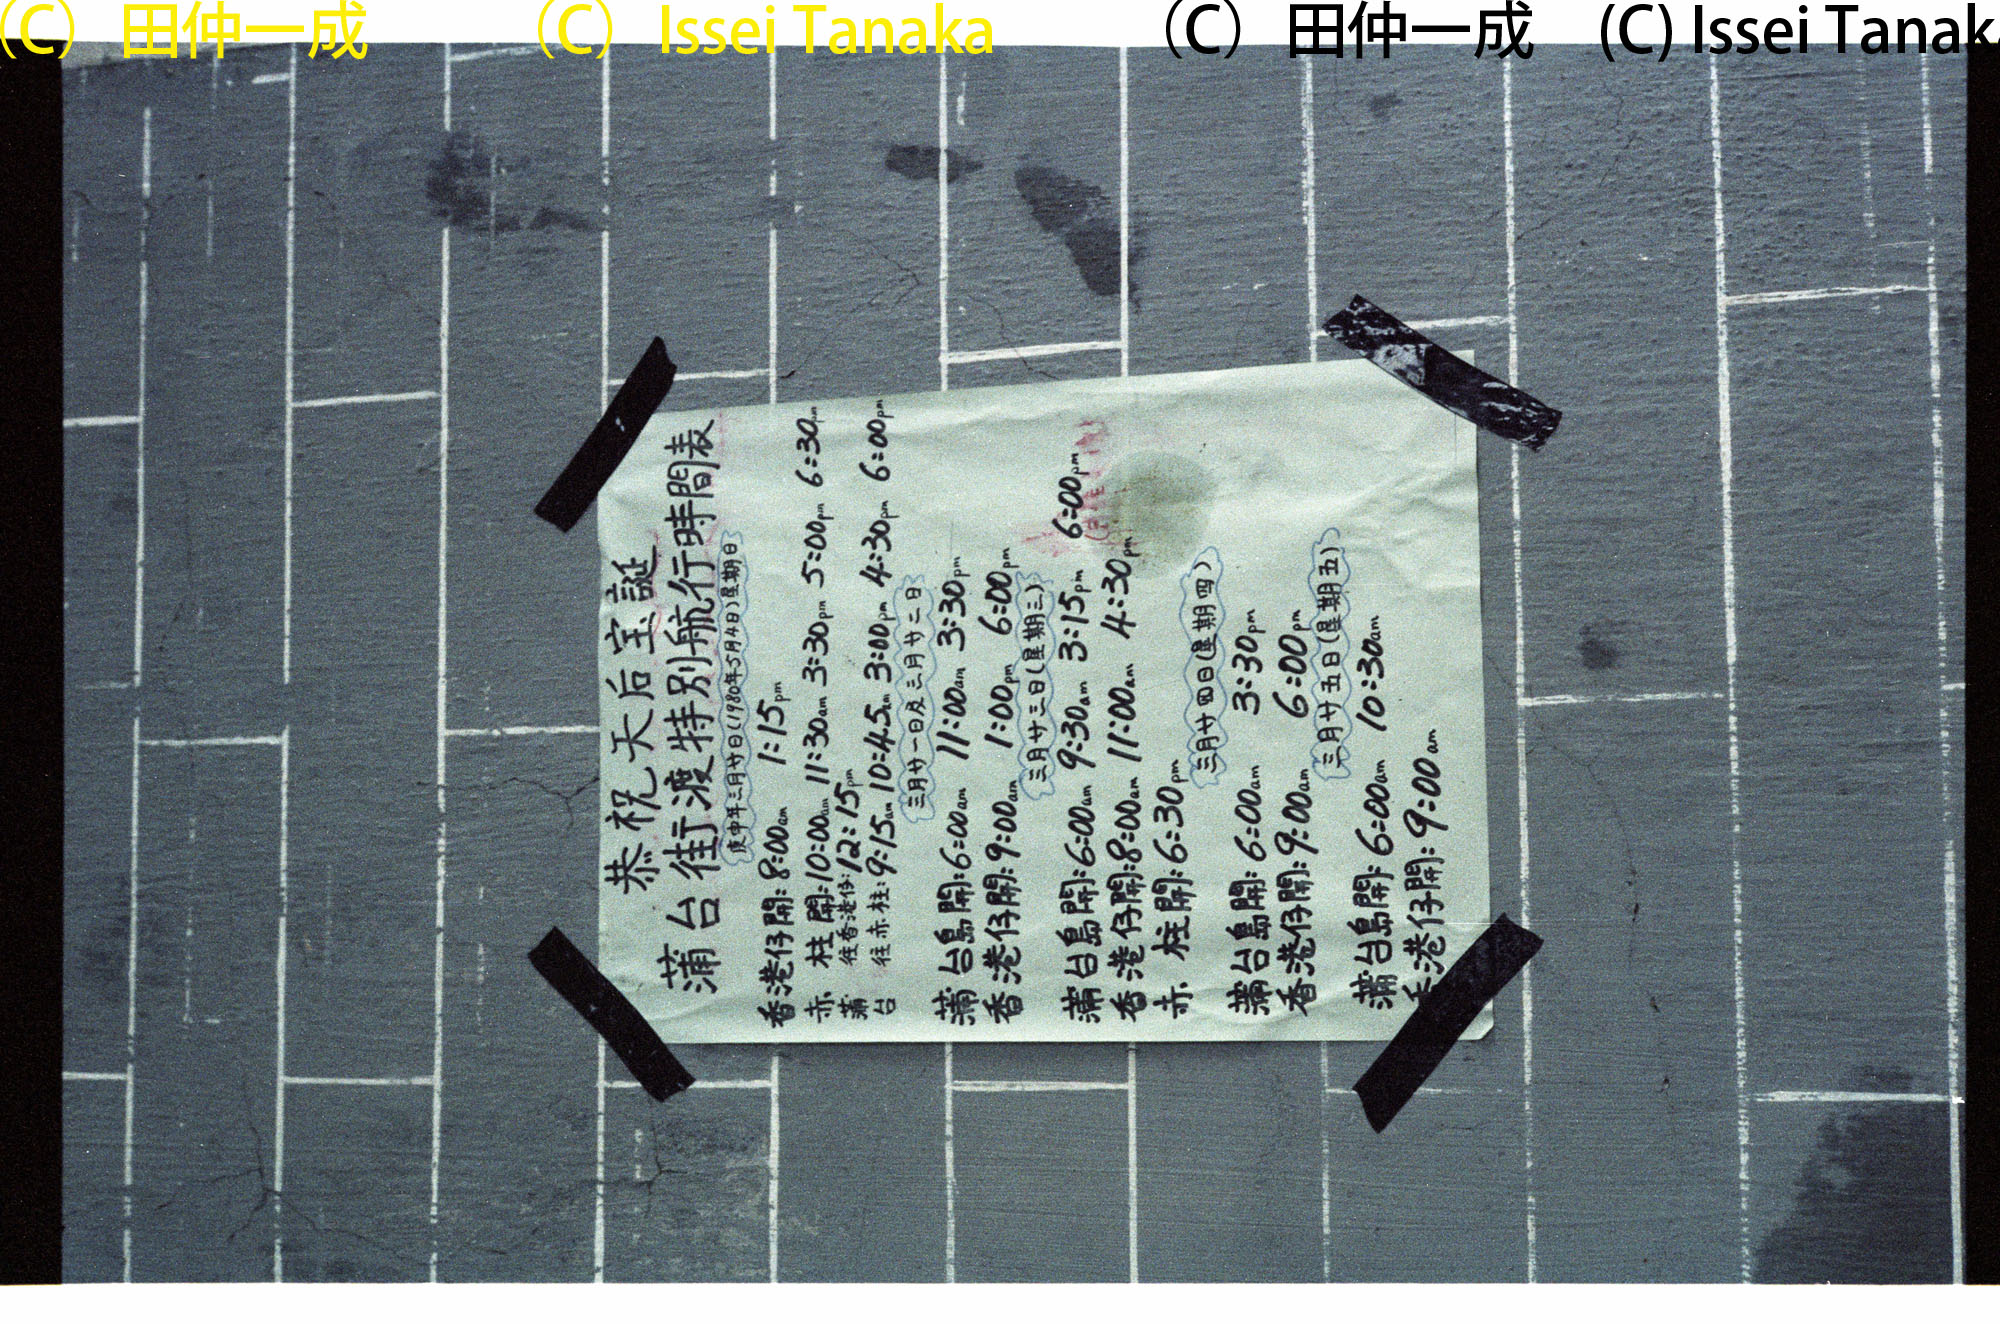 （C） 田仲一成 （C） Issei Tanaka （C） 田仲一成 (C) Issei Tanaka
恭祝天后宝誕
蒲台往渡特別航行時間表
庚申年三月廿日(1980年5月4日)星期日
香港仔開: 8:00am 1:15pm
赤柱開: 10:00am 11:30am 3:30pm 5:00pm 6:30pm
蒲台 往香港仔: 12:15pm
往赤柱: 9:15am 10:45am 3:00pm 4:30pm 6:00pm
三月廿一日及三月廿二日
蒲台島開: 6:00am 11:00am 3:30pm
香港仔開: 9:00am 1:00pm 6:00pm
三月廿三日(星期三)
蒲台島開: 6:00am 9:30am 3:15pm 6:00pm
香港仔開: 8:00am 11:00am 4:30pm
赤柱開: 6:30pm
三月廿四日(星期四)
蒲台島開: 6:00am 3:30pm
香港仔開: 9:00am 6:00pm
三月廿五日(星期五)
蒲台島開: 6:00am 10:30am
香港仔開: 9:00am